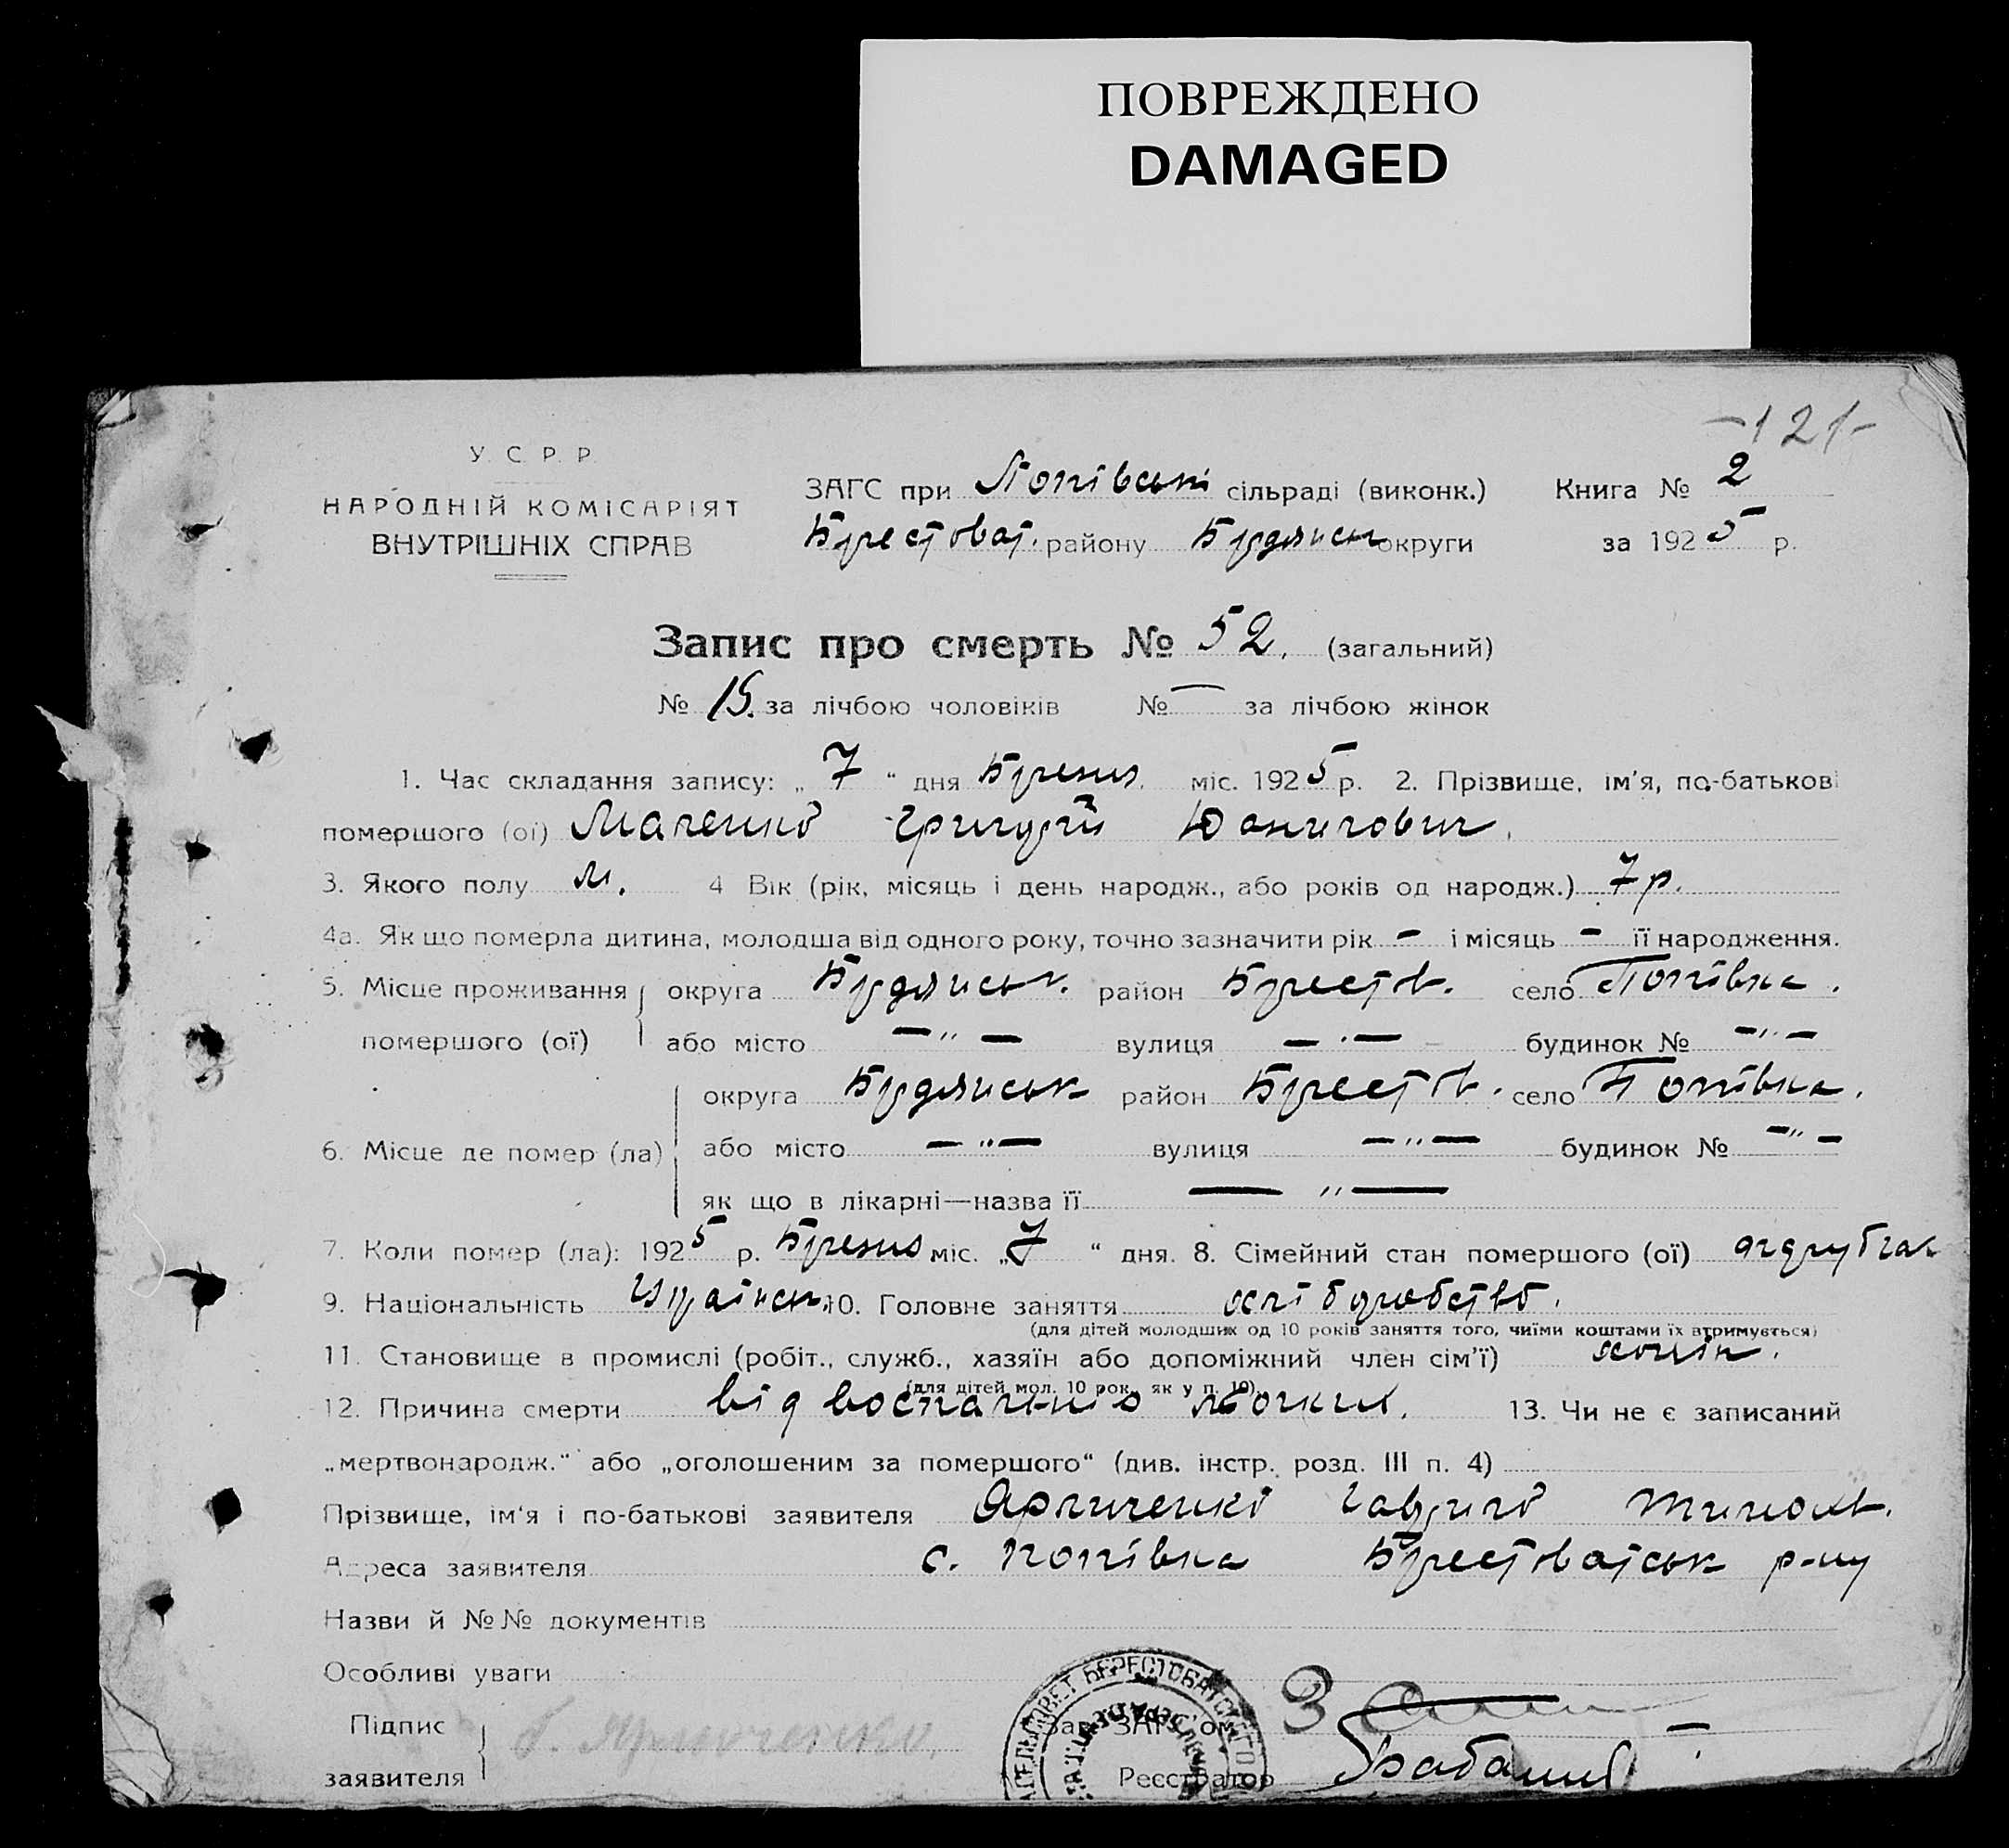 ПОВРЕЖДЕНО
DAMAGED
-121-
У. С. Р. Р.
НАРОДНІЙ КОМІСАРІЯТ
ВНУТРІШНІХ СПРАВ
ЗАГС при Попівській сільраді (виконк.) Книга № 2
Берестоват. району Бердянськ округи за 1925 р.
Запис про смерть № 52. (загальний)
№ 15. за лічбою чоловіків № — за лічбою жінок
1. Час складання запису: „ 7 “ дня Березня. міс. 1925 р. 2. Прізвище, ім'я, по-батькові
помершого (ої) Григорій
3. Якого полу м. 4 Вік (рік, місяць і день народж., або років од народж.) 7 р.
4а. Як що померла дитина, молодша від одного року, точно зазначити рік - і місяць - її народження.
5. Місце проживання округа Бердянськ. район Берестов. село Попівка.
помершого (ої) або місто — „ — вулиця — . — будинок № — „ —
округа Бердянськ район Берестов. село Попівка.
6. Місце де помер (ла) або місто — „ — вулиця — „ — будинок № — „ —
як що в лікарні—назва її — „ —
7. Коли помер (ла): 1925 р. Березня міс. „ 7 “ дня. 8. Сімейний стан помершого (ої)
9. Національність Українськ. 10. Головне заняття хліборобство.
(для дітей молодших од 10 років заняття того, чиїми коштами їх втримується)
11. Становище в промислі (робіт., служб., хазяїн або допоміжний член сім'ї)
(для дітей мол. 10 рок., як у п. 10).
12. Причина смерти від воспаления 13. Чи не є записаний
„мертвонародж.“ або „оголошеним за помершого“ (див. інстр. розд. III п. 4)
Прізвище, ім'я і по-батькові заявителя Гаврило
Адреса заявителя с. Попівка Берестоватськ р-ну
Назви й №№ документів
Особливі уваги
Підпис
заявителя
Зав. ЗАГС'ом
Реєстратор